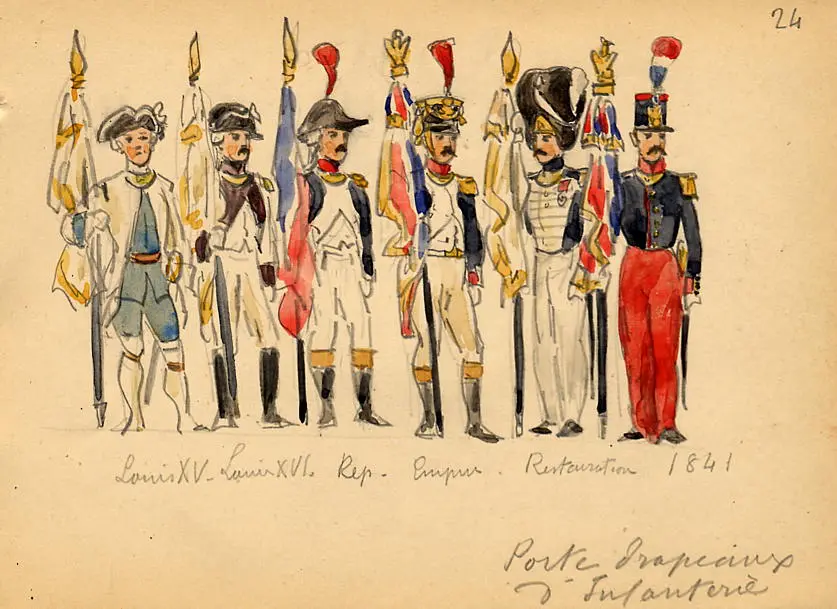 24
Louis XV - Louis XVI. Rep. Empire. Restauration 1841
Porte Drapeaux
d'Infanterie